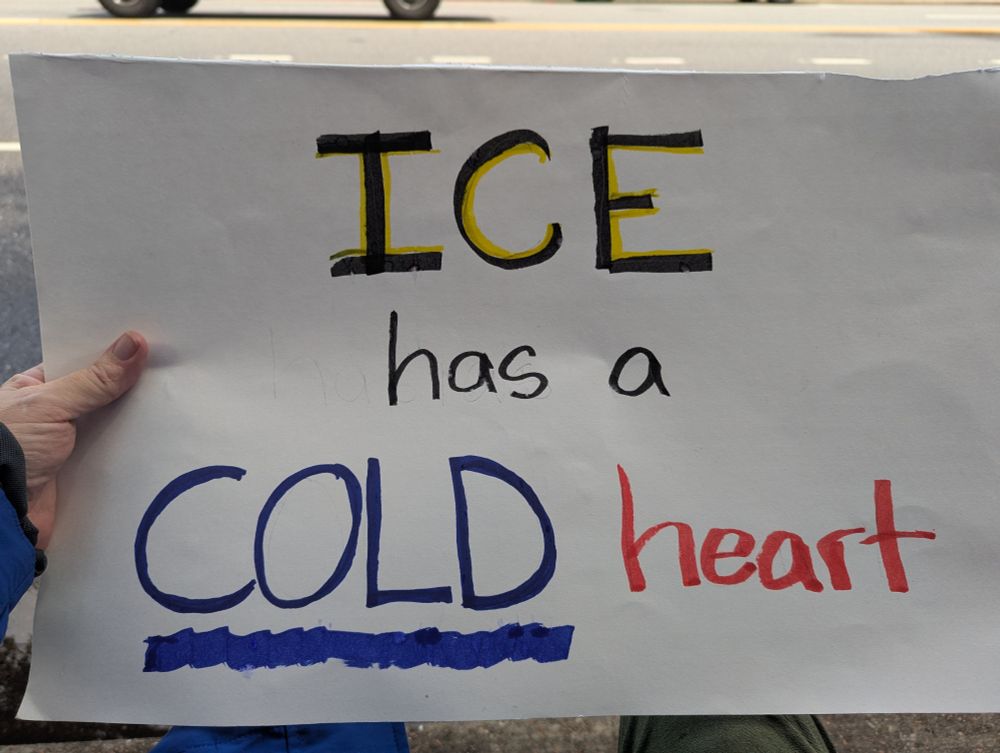 ICE
has a
COLD heart